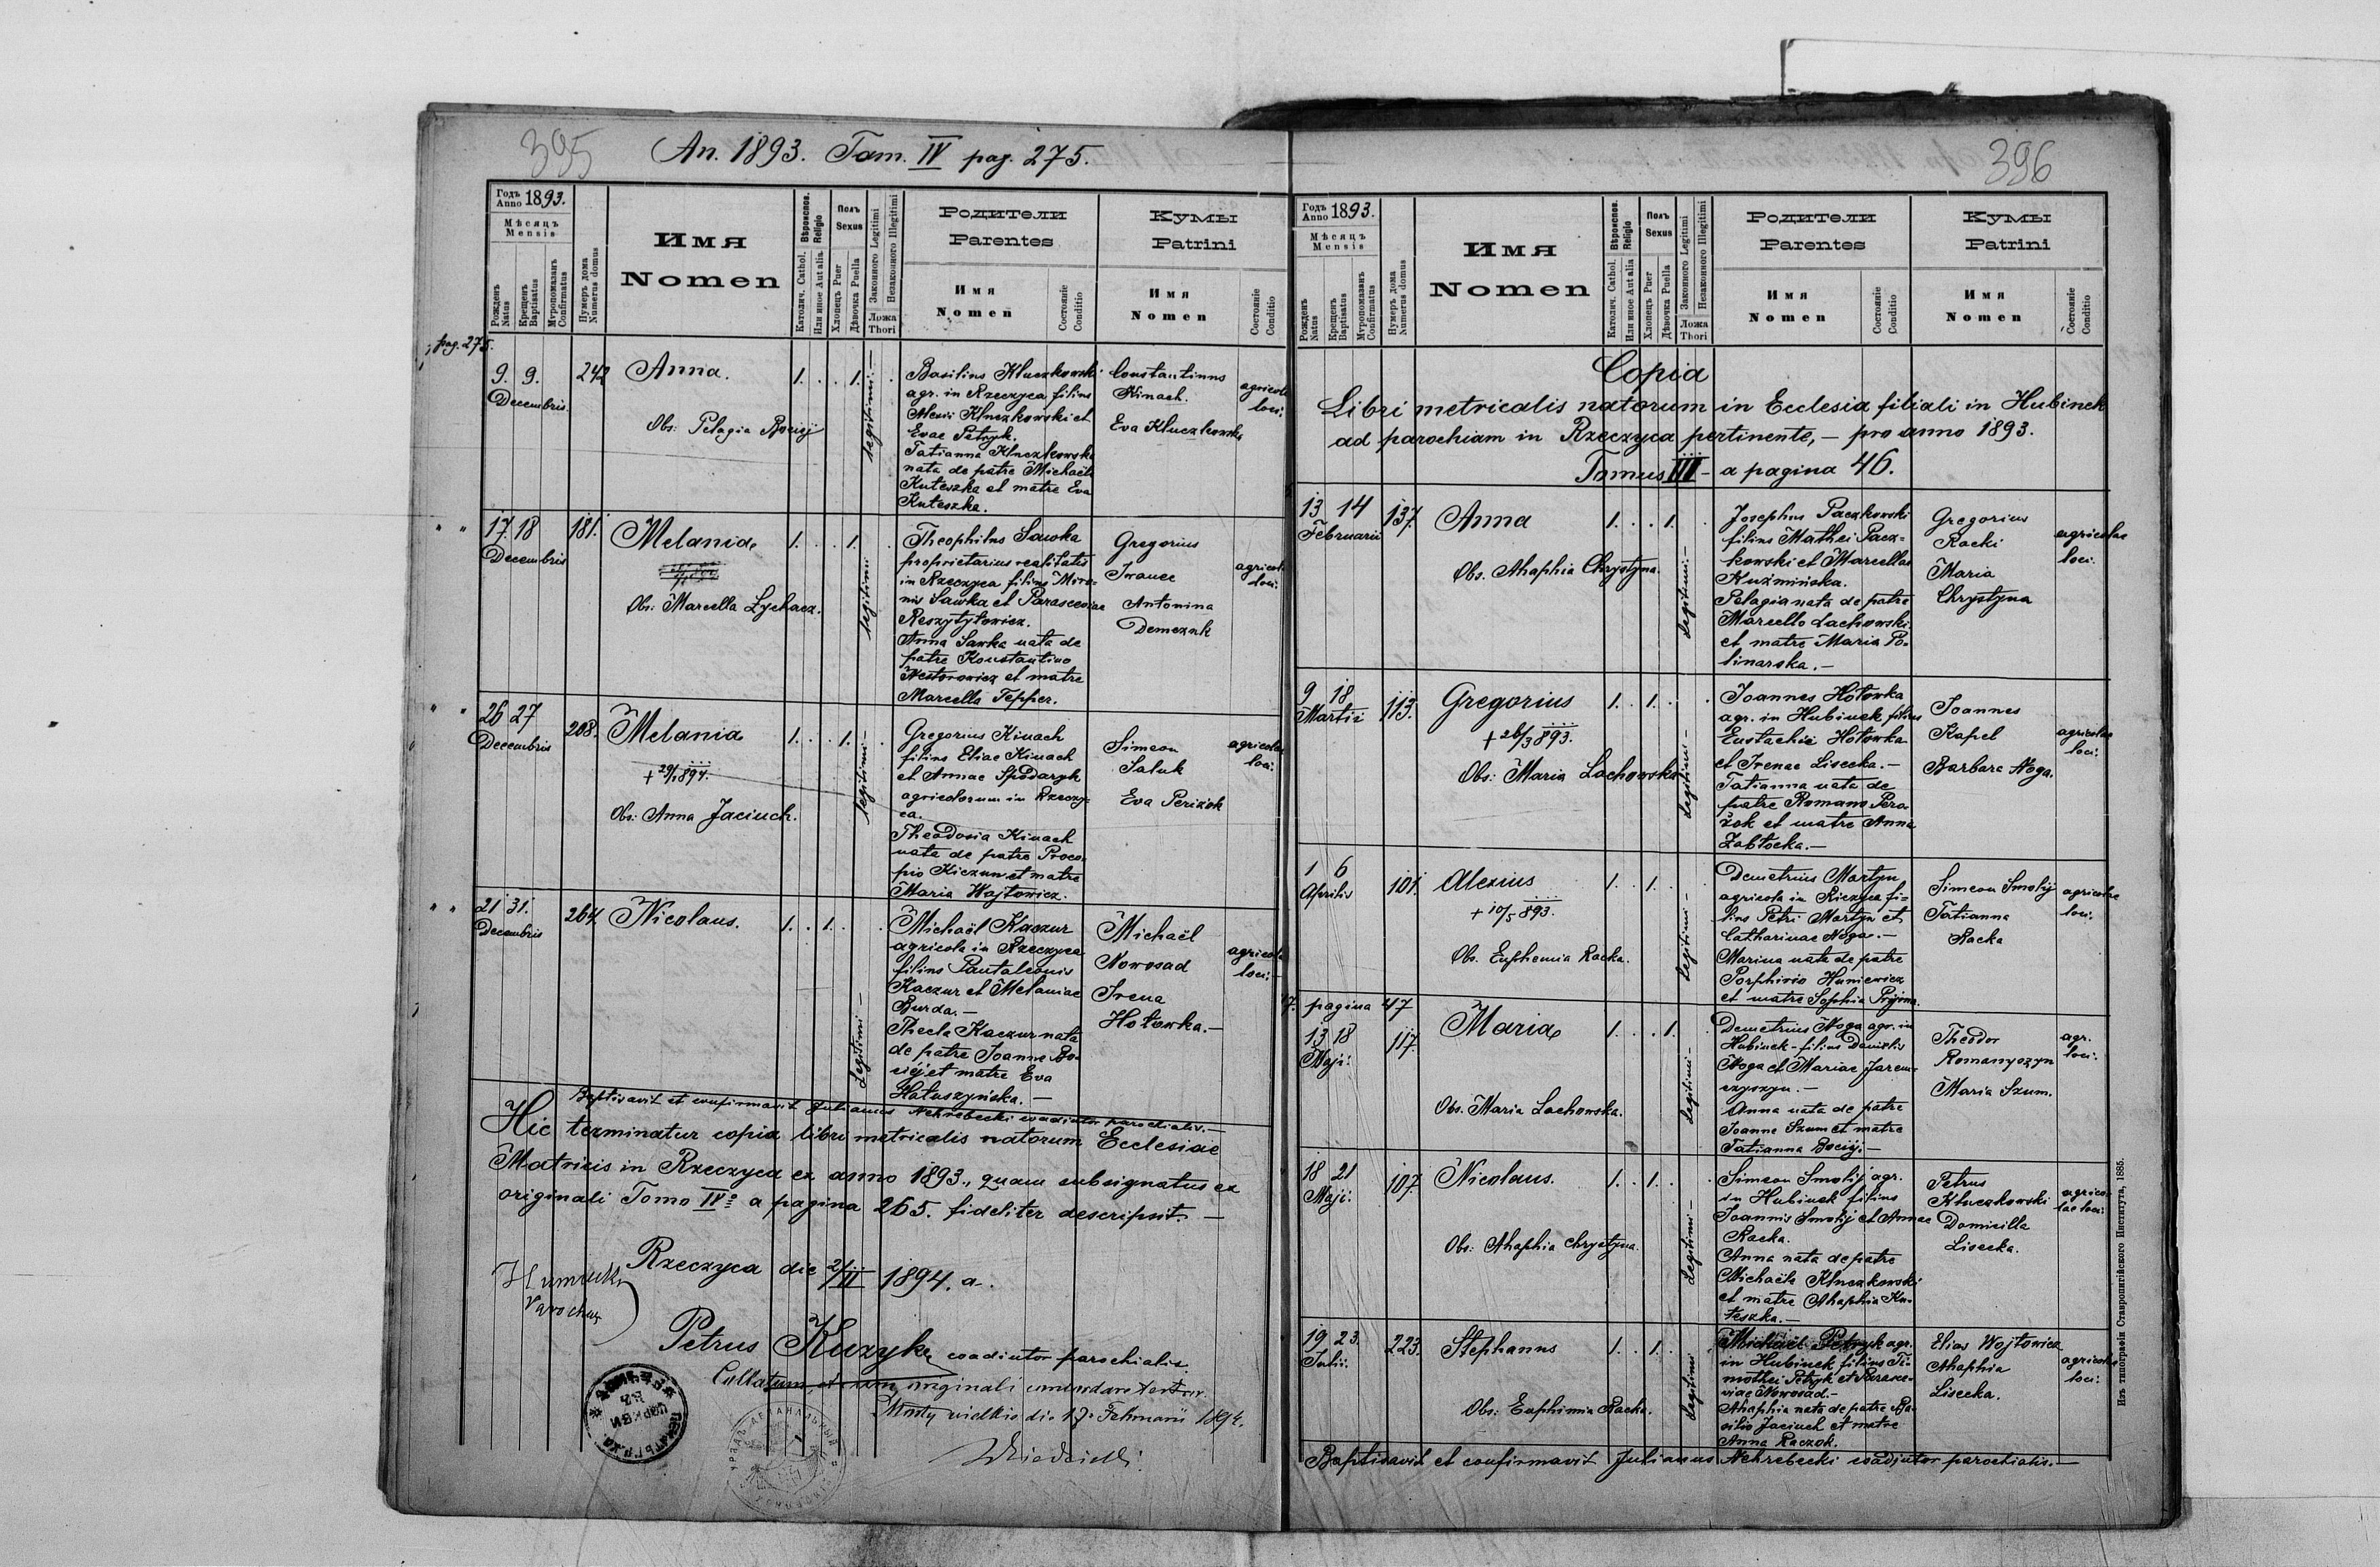 395
An. 1893. Tom. IV pag. 275.
Годъ Anno 1893.
Мѣсяцъ
Mensis
Рожденъ Natus
Крещенъ Baptisatus
Мѵропомазанъ Confirmatus
Нумеръ дома Numerus domus
Имя
Nomen
Вѣроисповѣд. Religio
Католич. Cathol.
Или иное Aut alia
Полъ
Sexus
Хлопецъ Puer
Дѣвочка Puella
Законного Legitimi
Незаконного Illegitimi
Ложа
Thori
Родители
Parentes
Имя
Nomen
Состояніе
Conditio
Кумы
Patrini
Имя
Nomen
Состояніе
Conditio
pag. 275.
9. 9.
Decembris
242
Anna.
Obs: Pelagia
1. . . 1. .
legitimi
Basilius Kluczkowski
agr. in Rzeczyca filius
Alexii Kluczkowski et
Evae Petryk.
Tatianna Kluczkowska
nata de patre Michaële
Kuteszka et matre Eva
Kuteszka.
Constantinus
Kinach.
Eva Kluczkowska
agricolae
loci.
" "
17. 18
Decembris
181.
Melania
Obs: Marcella Lychacz.
1. . . 1. .
legitimi
Theophilus Sawka
proprietarius realitatis
in Rzeczyca filius Miro-
nis Sawka et Parasceviae
Reszytyłowicz.
Anna Sawka nata de
patre Konstantino
Nestorowicz et matre
Marcella Tepper.
Gregorius
Iwanec
Antonina
Demczuk
agricolae
loci.
" "
26 27
Decembris
208.
Melania
+ 29/1 894.
Obs: Anna Jaciuch.
1. . . 1. .
legitimi -
Gregorius Kinach
filius Eliae Kinach
et Annae Spodaryk
agricolorum in Rzeczy-
ca.
Theodosia Kinach
nata de patre Proco-
pio Kiczun et matre
Maria Wojtowicz.
Simeon
Saluk
Eva Perizok
agricolae
loci.
" "
21 31.
Decembris
264.
Nicolaus.
1. . 1. . .
Legitimi -
Michaël Kaczur
agricola in Rzeczyca
filius Pantaleonis
Kaczur et Melaniae
Burda. -
Thecla Kaczur nata
de patre Joanne Bo-
cij et matre Eva
Hałuszyńska. -
Michaël
Nowosad
Irena
Hołowka. -
agricolae
loci. -
Baptisavit et confirmavit Julianus Nehrebecki coadiutor parochialis. -
Hic terminatur copia libri metricalis natorum Ecclesiae
Matricis in Rzeczyca ex anno 1893., quam subsignatus ex
originali Tomo IVo a pagina 265. fideliter descripsit. -
Rzeczyca die 2/II 1894. a.
Parochus
Petrus Kuzyk coadiutor parochialis
Collatum originali
Mosty wielkie die 17. Februarii 1894.
396
Годъ Anno 1893.
Мѣсяцъ
Mensis
Рожденъ Natus
Крещенъ Baptisatus
Мѵропомазанъ Confirmatus
Нумеръ дома Numerus domus
Имя
Nomen
Вѣроисповѣд. Religio
Католич. Cathol.
Или иное Aut alia
Полъ
Sexus
Хлопецъ Puer
Дѣвочка Puella
Законного Legitimi
Незаконного Illegitimi
Ложа
Thori
Родители
Parentes
Имя
Nomen
Состояніе
Conditio
Кумы
Patrini
Имя
Nomen
Состояніе
Conditio
Copia
Libri metricalis natorum in Ecclesia filiali in Hubinek
ad parochiam in Rzeczyca pertinente, - pro anno 1893.
Tomus III - a pagina 46.
13 14
Februarii
137.
Anna
Obs. Ahaphia Chrystyna.
1. . . 1. .
legitimi. -
Josephus Paczkowski
filius Mathei Pacz-
kowski et Marcellae
Kuzmińska.
Pelagia nata de patre
Marcello Lachowski
et matre Maria Po-
linarska. -
Gregorius
Racki
Maria
Chrystyna
agricolae
loci.
9 18
Martii
113.
Gregorius
+ 26/3 893.
Obs: Maria Lachowska
1. . 1. . .
legitimi -
Joannes Hołowka
agr. in Hubinek filius
Eustachie Hołowka
et Irenae Lisecka. -
Tatianna nata de
patre Romano Pera-
żok et matre Anna
Zabłocka. -
Joannes
Kapel
Barbara Noga.
agricolae
loci.
1 6
Aprilis
101.
Alexius
+ 10/5 893.
Obs. Euphemia Racka.
1. . 1. .
legitimi -
Demetrius Martyn
agricola in Rzeczyca fi-
lius Petri Martyn et
Catharinae Noga. -
Marina nata de patre
Porphirio Huniewicz
et matre Sophia Pryjma.
Simeon Smolij
Tatianna
Racka
agricolae
loci.
pagina 47
13 18
Maji:
117.
Maria
Obs. Maria Lachowska.
1. . . 1. .
legitimi -
Demetrius Noga agr. in
Hubinek - filius Danielis
Noga et Mariae Jarem-
czyszyn. -
Anna nata de patre
Joanne Szum et matre
Tatianna Bocij. -
Theodor
Romanyszyn
Maria Szum.
agr.
loci.
18 21
Maji:
107.
Nicolaus.
Obs: Ahaphia Chrystyna.
1. . 1. . .
legitimi -
Simeon Smolij agr.
in Hubinek filius
Joannis Smolij et Annae
Racka.
Anna nata de patre
Michaële Kluczkowski
et matre Ahaphia Ku-
teszka. -
Petrus
Kluczkowski
Domicilla
Lisecka.
agrico-
lae loci.
19 23.
Julii.
223.
Stephanus
Obs: Euphimia Racka.
1. . 1. . .
legitimi
Michaël Petryk agr.
in Hubinek filius Ti-
mothei Petryk et Parasce-
viae Nowosad. -
Ahaphia nata de patre Ba-
silio Jaciuch et matre
Anna Raczok.
Elias Wojtowicz
Ahaphia
Lisecka.
agricolae
loci.
Baptisavit et confirmavit Julianus Nehrebecki coadiutor parochialis. -
Изъ типографіи Ставропигійского Института, 1885.